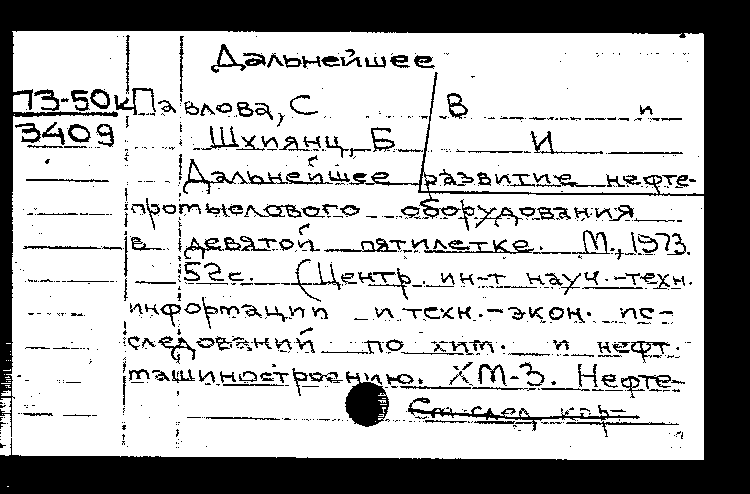 Дальнейшее
73-50к Павлова, С В и
3409 Шхиянц, Б И
Дальнейшее развитие нефте-
промыслового оборудования
в девятой пятилетке. М., 1973.
52с. (Центр. ин-т науч.-техн.
информации и техн.-экон. ис-
следований по хим. и нефт.
машиностроению. ХМ-3. Нефте-
См след. кар-